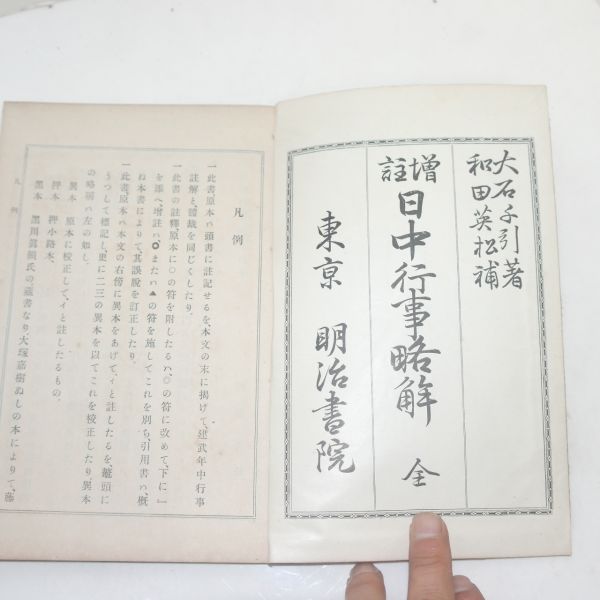 大石千引著
和田英松補
増註 日中行事略解 全
東京 明治書院
凡例
一此書原本ハ頭書に註記せるを、本文の末に揭げて、建武年中行事
註解と體裁を同じくしたり。
一此書の註釋原本に〇の符を附したるハ、〇の符に改めて、下に』
を添へ、增註ハ〇または▲の符を施してこれを別ち、引用書ハ、槪
ね本書によりて、其誤脫を訂正したり。
一此書原本ハ本文の右傍に異本をあげて、イと註したるを、鼇頭に
うつして標記し、更に二三の異本を以てこれを校正したり、異本
の略稱ハ左の如し。
異本 原本に校正して、イと註したるもの。
押本 押小路本。
黑本 黑川眞賴氏の藏書なり、大塚嘉樹ぬしの本によりて、藤
凡例